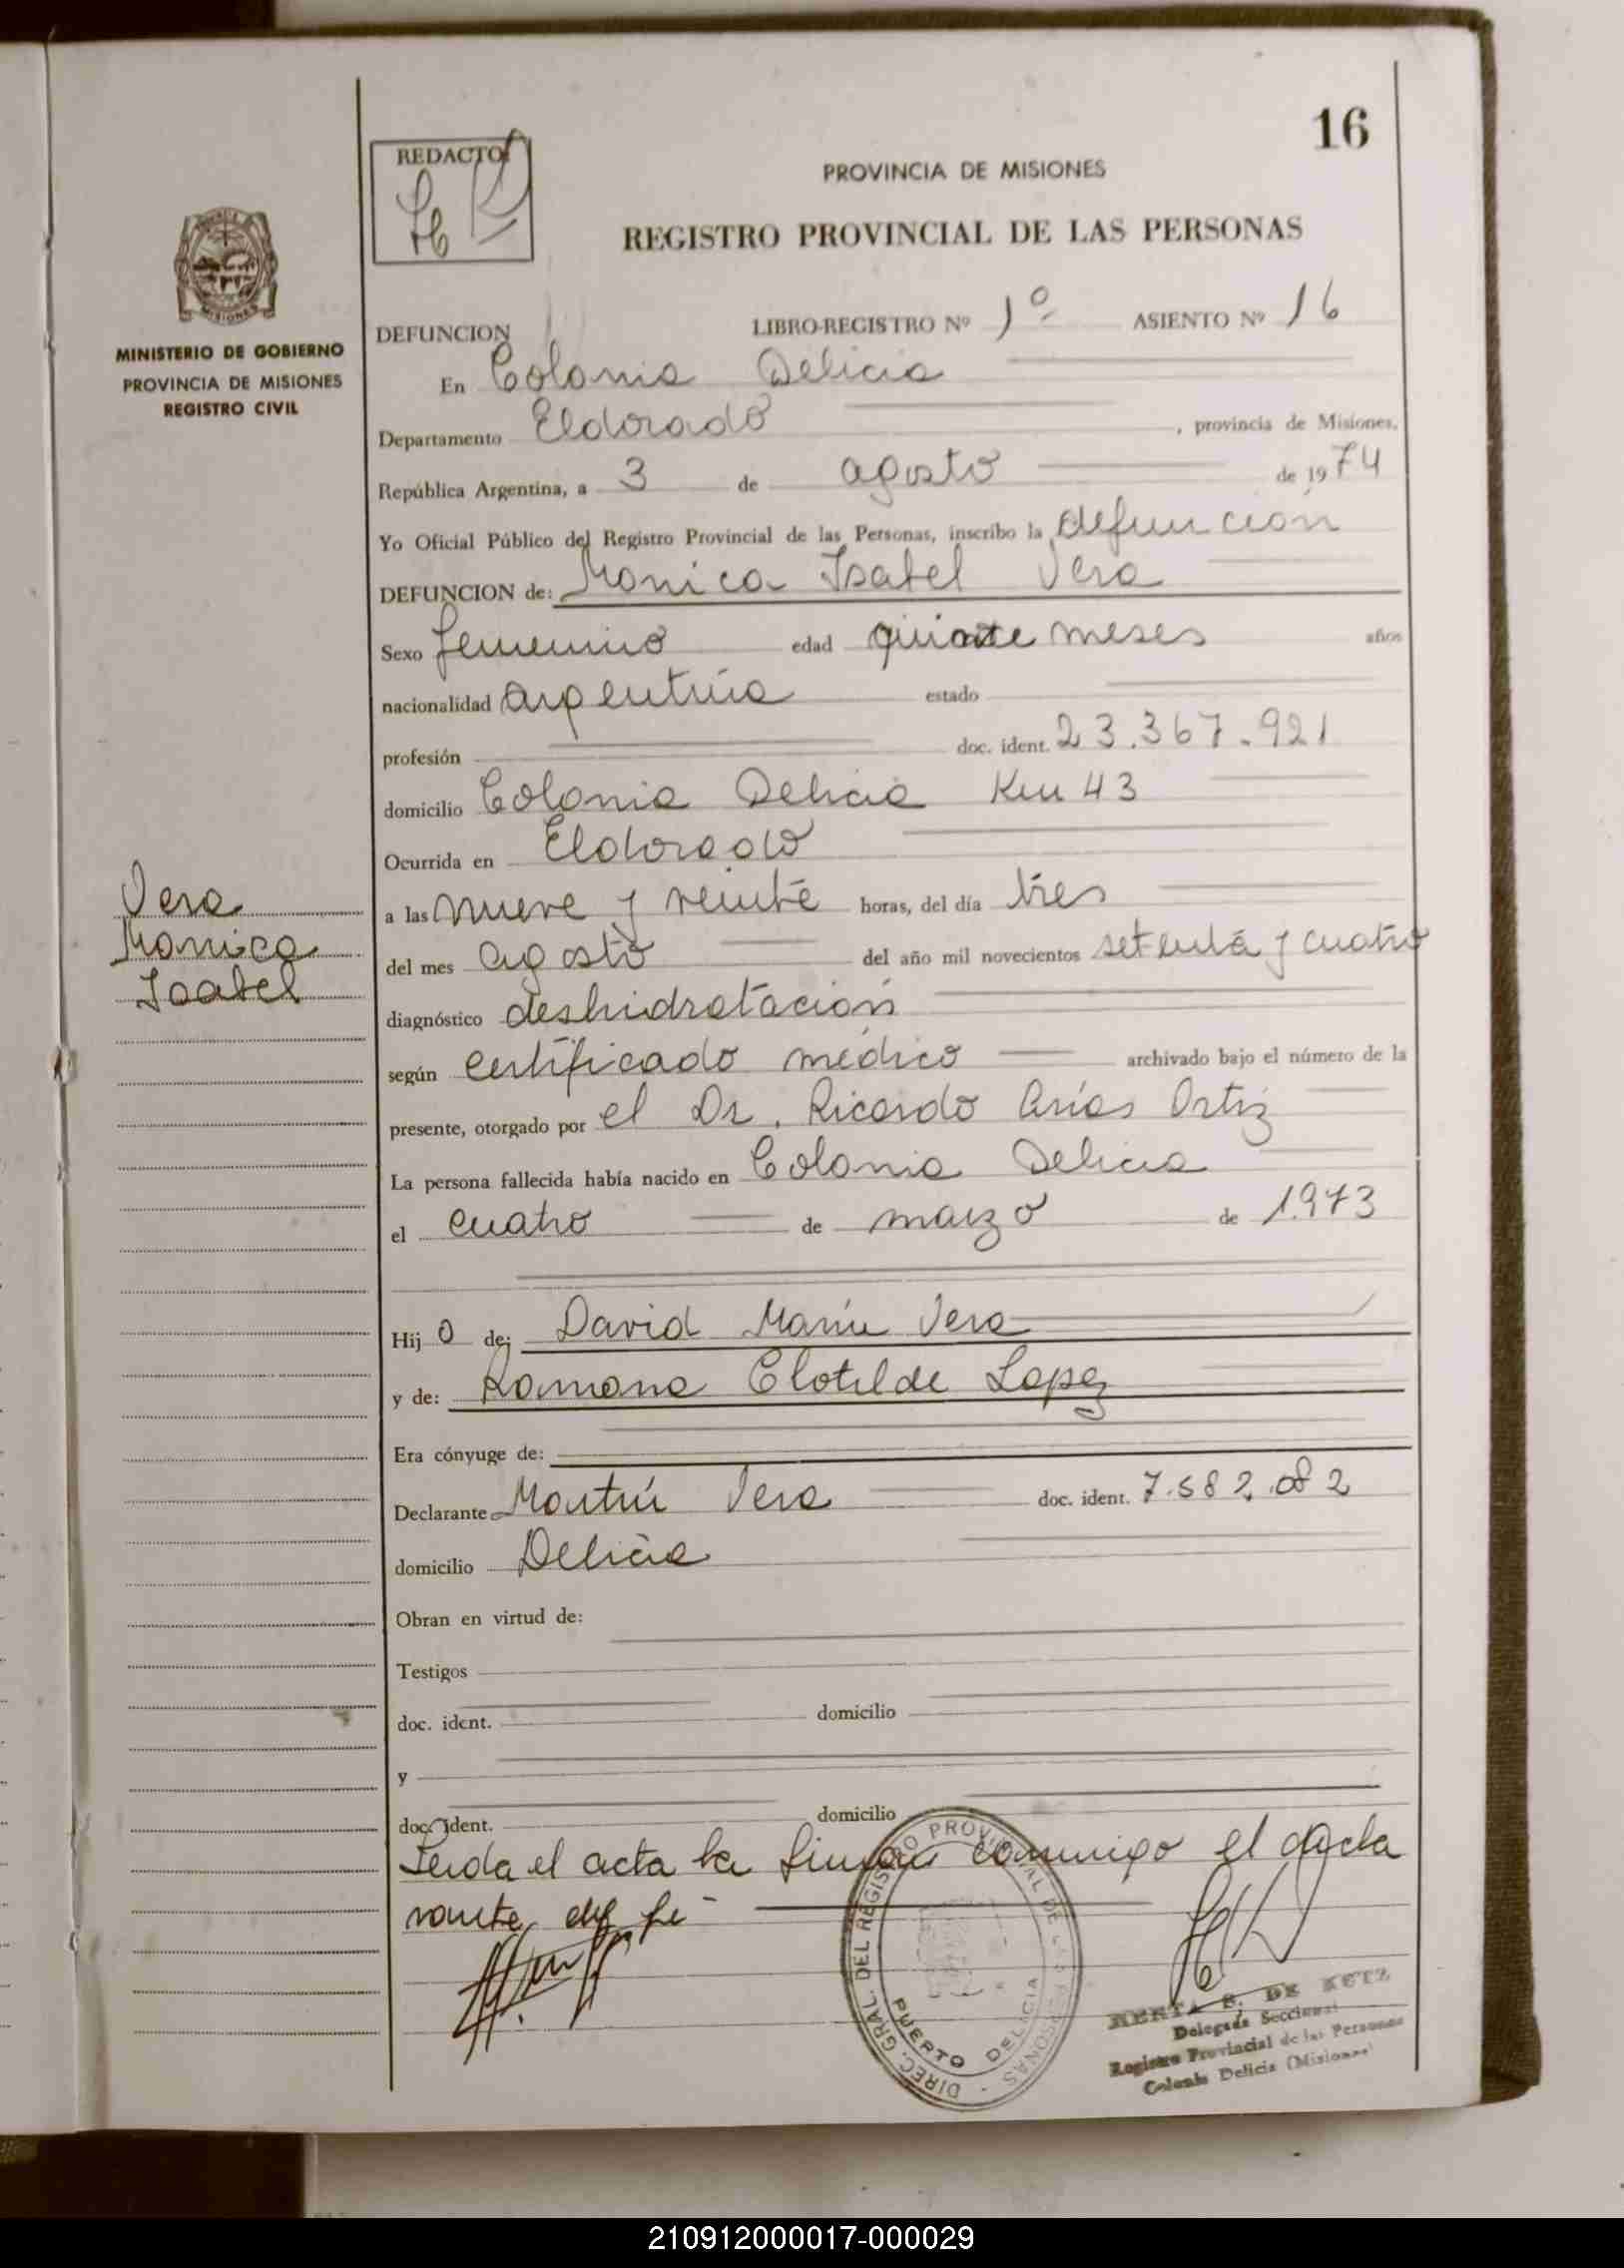 16
REDACTO:
PROVINCIA DE MISIONES
REGISTRO PROVINCIAL DE LAS PERSONAS
MINISTERIO DE GOBIERNO
PROVINCIA DE MISIONES
REGISTRO CIVIL
DEFUNCION LIBRO-REGISTRO Nº 1º ASIENTO Nº 16
En Colonia Delicia
Departamento Eldorado , provincia de Misiones,
República Argentina, a 3 de agosto de 1974
Yo Oficial Público del Registro Provincial de las Personas, inscribo la defuncion
DEFUNCION de: Monica Isabel Vera
Sexo femenino edad quince meses años
nacionalidad argentina estado
profesión doc. ident. 23.367.921
domicilio Colonia Delicia Km 43
Ocurrida en Eldorado
a las nueve y veinte horas, del día tres
del mes agosto del año mil novecientos setenta y cuatro
diagnóstico deshidratación
según certificado médico archivado bajo el número de la
presente, otorgado por el Dr. Ricardo Arias Ortiz
La persona fallecida había nacido en Colonia Delicia
el cuatro de marzo de 1.973
Vera
Monica
Isabel
Hij o de: David Vera
y de: Ramona Clotilde Lopez
Era cónyuge de:
Declarante Martín Vera doc. ident. 7.582.082
domicilio Delicia
Obran en virtud de:
Testigos
doc. ident. domicilio
y
doc. ident. domicilio
Leida el acta la firma conmigo el decla
rante doy fé
DIREC. GRAL. DEL REGISTRO PROVINCIAL DE LAS PERSONAS
PUERTO DELICIA
DE
Delegada Seccional
Registro Provincial de las Personas
Colonia Delicia (Misiones)
210912000017-000029